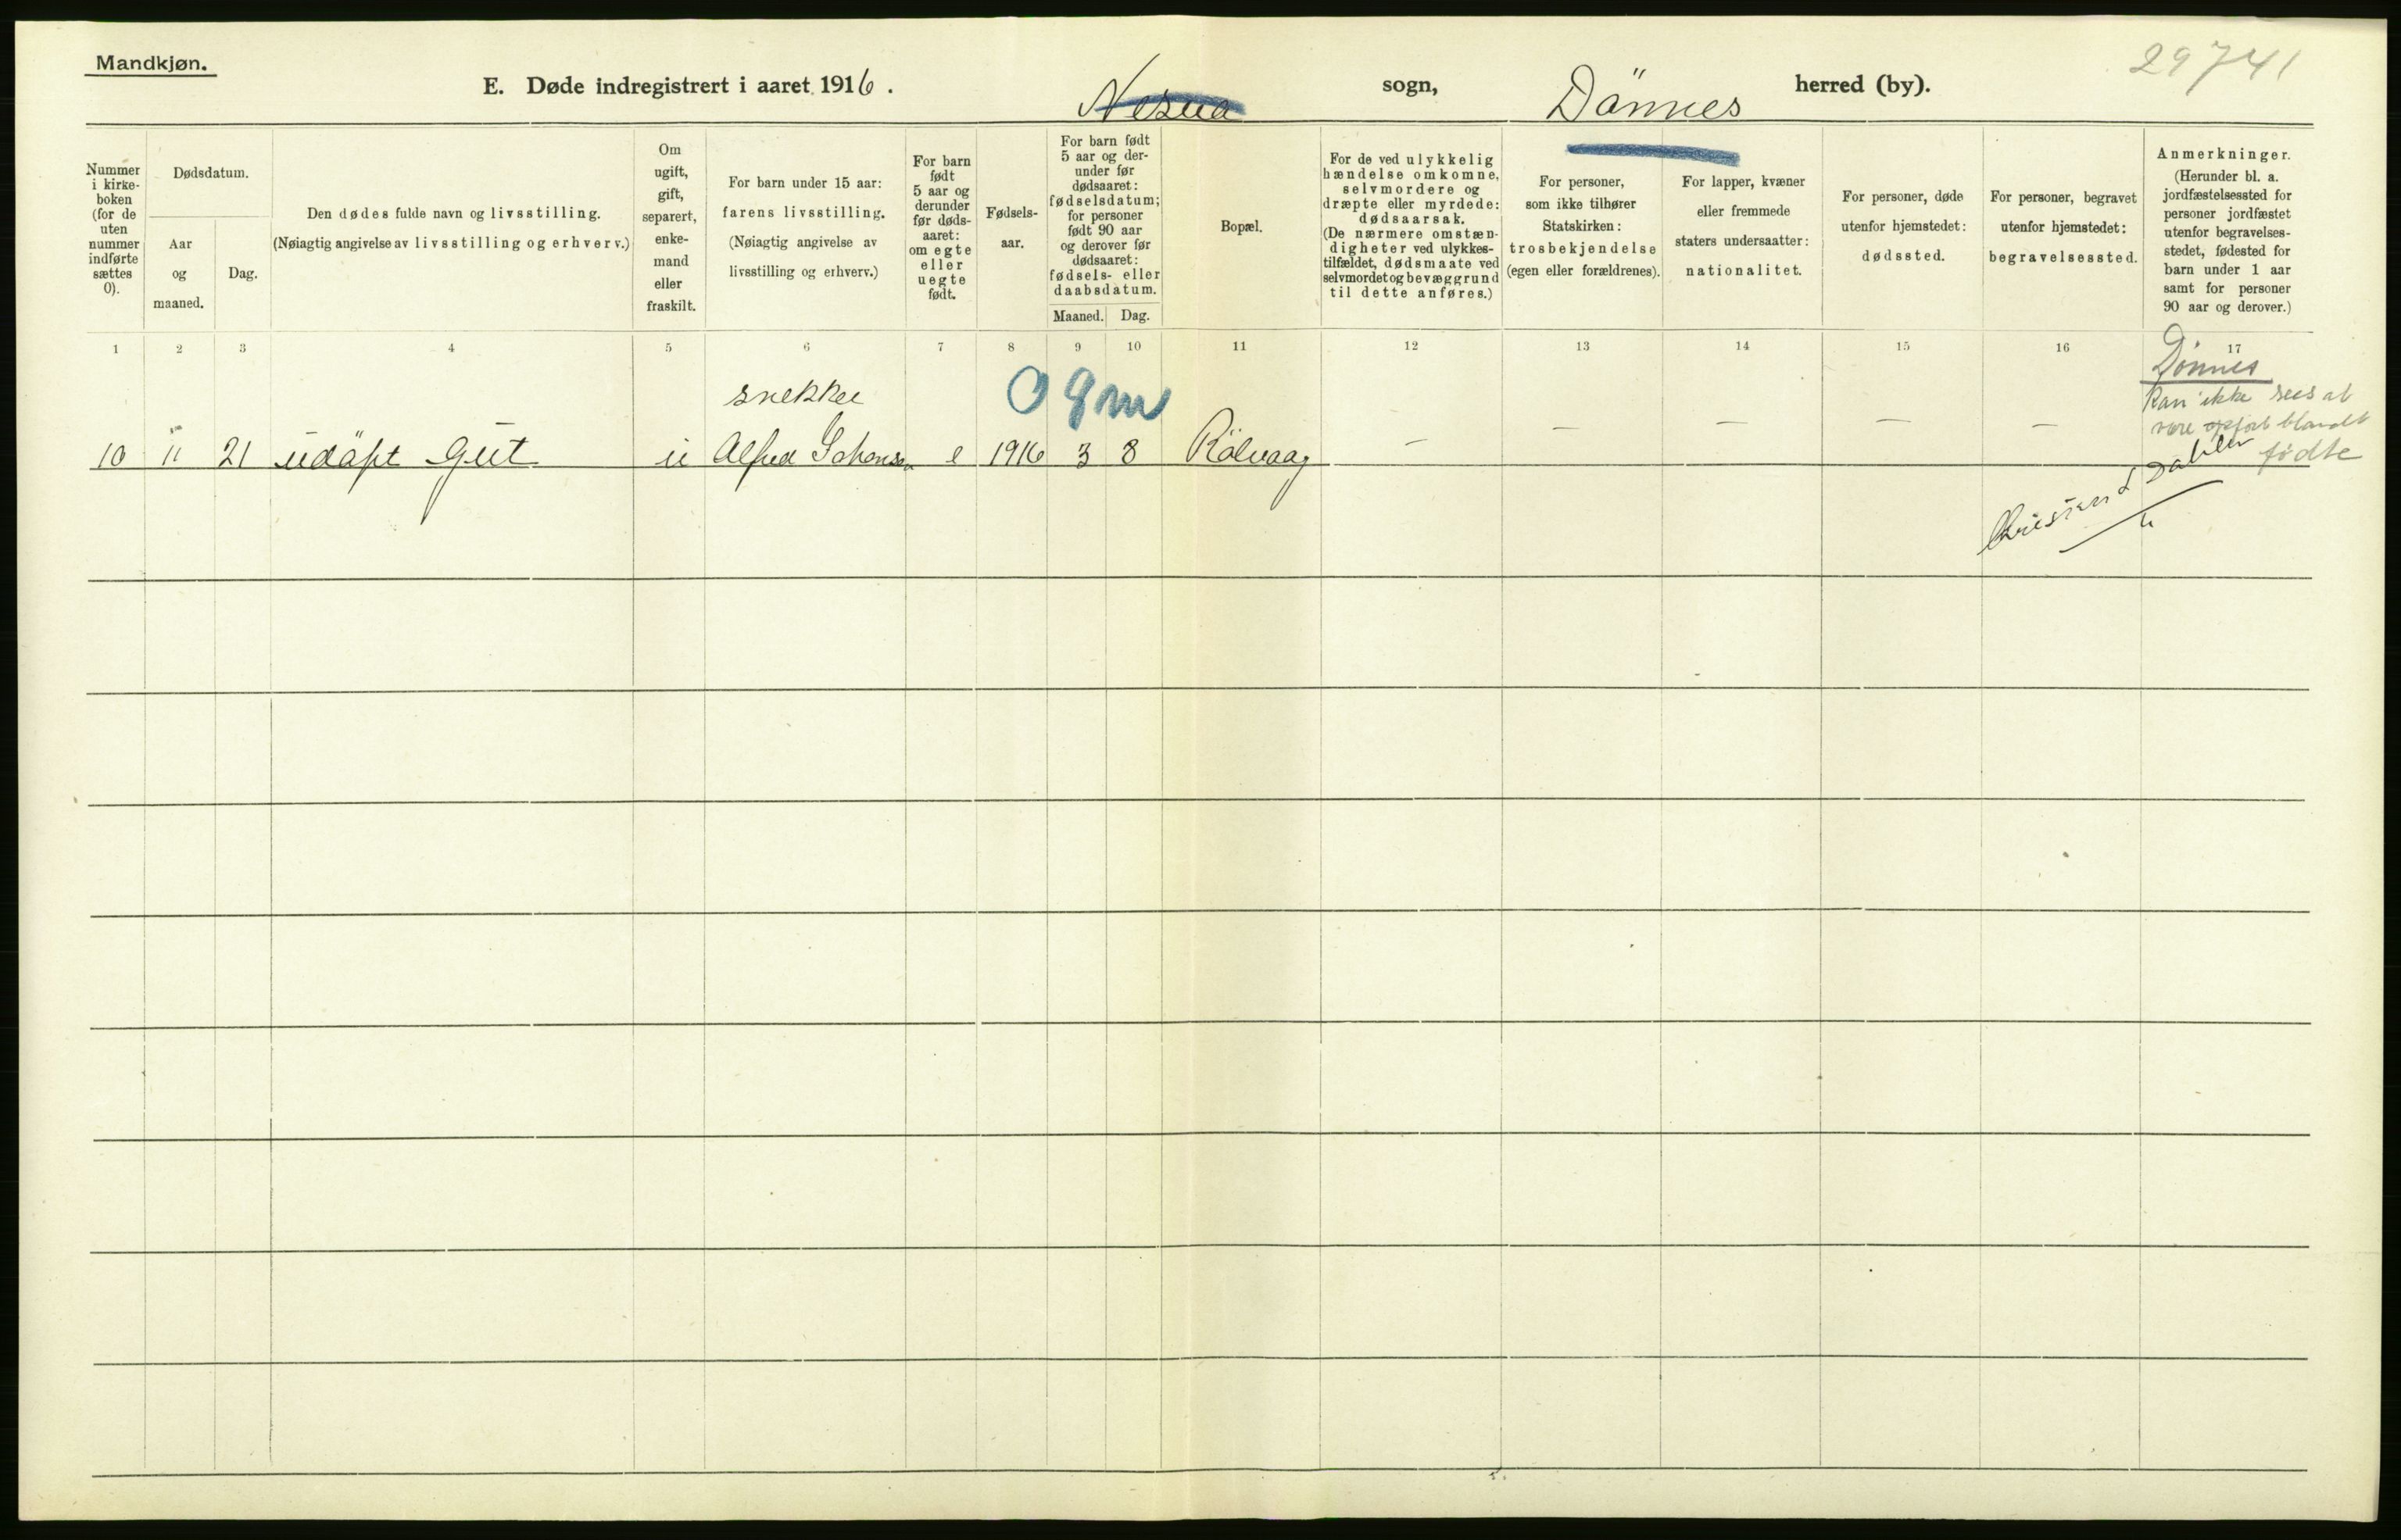 Mandkjøn.
29741
E. Døde indregistrert i aaret 1916. Nesna sogn, Dönnes herred (by).
Nummer i kirke-boken (for de uten nummer indførte sættes 0).
Dødsdatum.
Aar og maaned.
Dag.
Den dødes fulde navn og livsstilling.
(Nøiagtig angivelse av livsstilling og erhverv.)
Om ugift, gift, separert, enke-mand eller fraskilt.
For barn under 15 aar: farens livsstilling. (Nøiagtig angivelse av livsstilling og erhverv.)
For barn født 5 aar og derunder før døds-aaret: om egte eller uegte født.
Fødsels-aar.
For barn født 5 aar og der-under før dødsaaret: fødselsdatum; for personer født 90 aar og derover før dødsaaret: fødsels- eller daabsdatum.
Maaned. Dag.
Bopæl.
For de ved ulykkelig hændelse omkomne, selvmordere og dræpte eller myrdede: dødsaarsak. (De nærmere omstæn-digheter ved ulykkes-tilfældet, dødsmaate ved selvmordet og bevæggrund til dette anføres.)
For personer, som ikke tilhører Statskirken: trosbekjendelse (egen eller forældrenes).
For lapper, kvæner eller fremmede staters undersaatter: nationalitet.
For personer, døde utenfor hjemstedet: dødssted.
For personer, begravet utenfor hjemstedet: begravelsessted.
Anmerkninger. (Herunder bl. a. jordfæstelsessted for personer jordfæstet utenfor begravelses-stedet, fødested for barn under 1 aar samt for personer 90 aar og derover.)
1 2 3 4 5 6 7 8 9 10 11 12 13 14 15 16 17
Dönnes
snekker
0 8 m
Kan ikke sees at
være opført blandt
fødte
10 11 21 udöpt Gut u Alfred Johansen e 1916 3 8 Rölvaag — — — — —